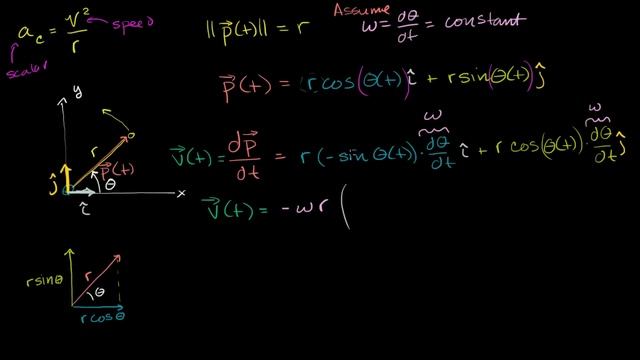 a_c = v²/r speed
scalar
||p⃗(t)|| = r
Assume
ω = dθ/dt = constant
p⃗(t) = r cos(θ(t)) î + r sin(θ(t)) ĵ
y
r
p⃗(t)
ĵ
θ
x
î
ω ω
v⃗(t) = dp⃗/dt = r(-sin θ(t)) · dθ/dt î + r cos(θ(t)) · dθ/dt ĵ
v⃗(t) = -ωr (
r sinθ
r
θ
r cosθ